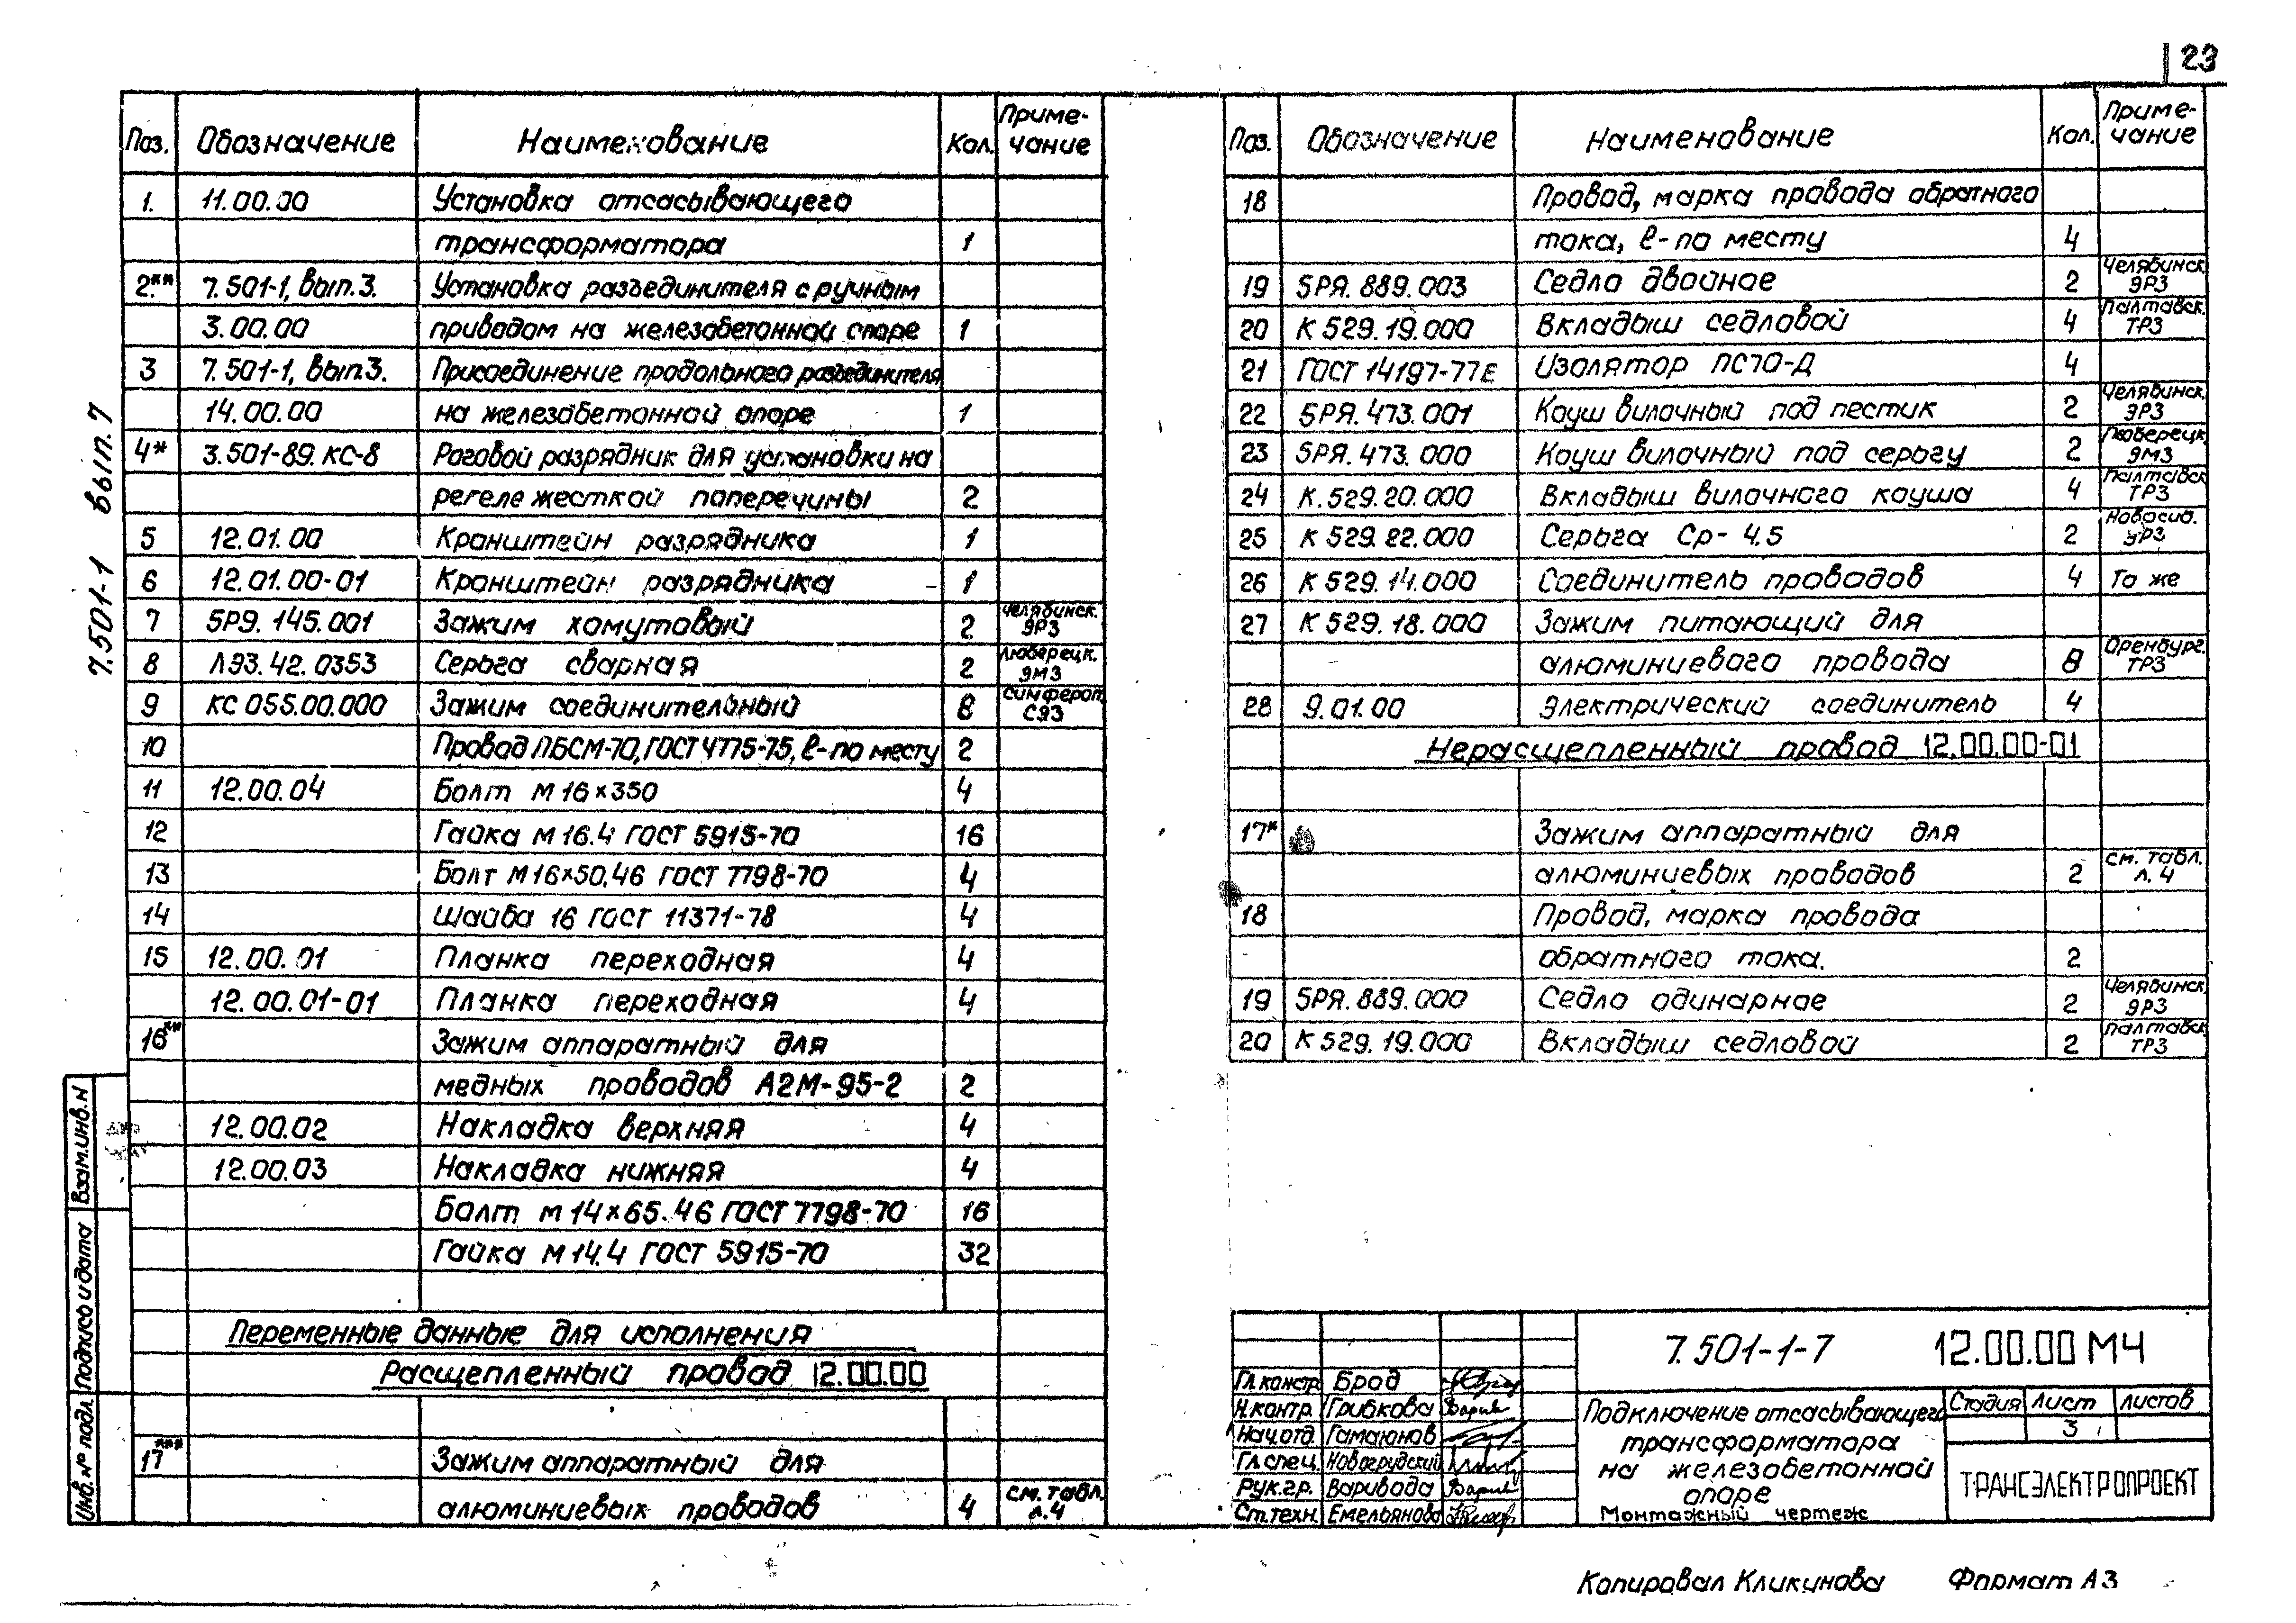 23
7.501-1 вып. 7
Поз. Обозначение Наименование Кол. Приме-
чание
1. 11.00.00 Установка отсасывающего
трансформатора 1
2.** 7.501-1, вып.3. Установка разъединителя с ручным
3.00.00 приводом на железобетонной опоре 1
3 7.501-1, вып.3. Присоединение продольного разъединителя
14.00.00 на железобетонной опоре 1
4* 3.501-89. КС-8 Роговой разрядник для установки на
регеле жесткой поперечины 2
5 12.01.00 Кронштейн разрядника 1
6 12.01.00-01 Кронштейн разрядника 1
7 5РЯ. 145.001 Зажим хомутовый 2 Челябинск. ЭРЗ
8 ЛЭЗ. 42. 0353 Серьга сварная 2 Люберецк. ЭМЗ
9 КС 055.00.000 Зажим соединительный 8 Симфероп. СЭЗ
10 Провод ПБСМ-70, ГОСТ 4775-75, ℓ-по месту 2
11 12.00.04 Болт М 16×350 4
12 Гайка М 16.4 ГОСТ 5915-70 16
13 Болт М16×50.46 ГОСТ 7798-70 4
14 Шайба 16 ГОСТ 11371-78 4
15 12.00.01 Планка переходная 4
12.00.01-01 Планка переходная 4
16** Зажим аппаратный для
медных проводов А2М-95-2 2
12.00.02 Накладка верхняя 4
12.00.03 Накладка нижняя 4
Болт м 14×65.46 ГОСТ 7798-70 16
Гайка М 14.4 ГОСТ 5915-70 32
Переменные данные для исполнения
Расщепленный провод 12.00.00
17*** Зажим аппаратный для
алюминиевых проводов 4 см. табл. л.4
Взам.инв.N
Подпись и дата
Инв.№ подл.
Поз. Обозначение Наименование Кол. Приме-
чание
18 Провод, марка провода обратного
тока, ℓ-по месту 4
19 5РЯ. 889.003 Седло двойное 2 Челябинск. ЭРЗ
20 К 529.19.000 Вкладыш седловой 4 Полтавск. ТРЗ
21 ГОСТ 14197-77Е Изолятор ПС70-Д 4
22 5РЯ. 473.001 Коуш вилочный под пестик 2 Челябинск. ЭРЗ
23 5РЯ. 473.000 Коуш вилочный под серьгу 2 Люберецк. ЭМЗ
24 К.529.20.000 Вкладыш вилочного коуша 4 Полтавск. ТРЗ
25 К 529.22.000 Серьга Ср- 4.5 2 Новосиб. ЭРЗ
26 К 529.14.000 Соединитель проводов 4 То же
27 К 529.18.000 Зажим питающий для
алюминиевого провода 8 Оренбург. ТРЗ
28 9.01.00 Электрический соединитель 4
Нерасщепленный провод 12.00.00-01
17* Зажим аппаратный для
алюминиевых проводов 2 см. табл. л. 4
18 Провод, марка провода
обратного тока. 2
19 5РЯ.889.000 Седло одинарное 2 Челябинск. ЭРЗ
20 К 529.19.000 Вкладыш седловой 2 Полтавск. ТРЗ
Гл.констр. Брод
Н.контр. Грибкова
Нач.отд. Гамаюнов
Гл.спец. Новогрудский
Рук.гр. Варивода
Ст.техн. Емельянова
7.501-1-7 12.00.00 МЧ
Подключение отсасывающего
трансформатора
на железобетонной
опоре
Монтажный чертеж
Стадия Лист Листов
3
ТРАНСЭЛЕКТРОПРОЕКТ
Копировал Кликунова Формат А3